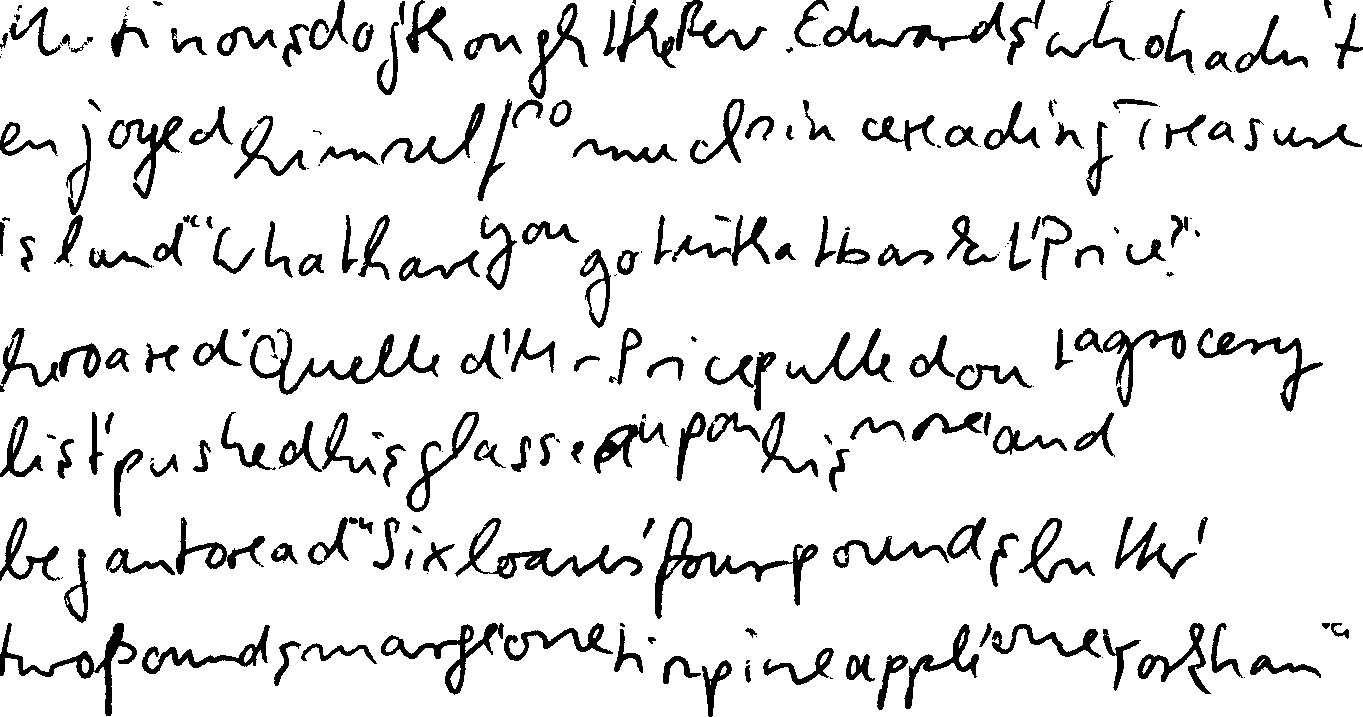 Mutinous dog, thought the Rev. Edwards, who hadn't
enjoyed himself so much since reading Treasure
Island. "What have you got in that basket, Price?"
he roared. Quelled, Mr. Price pulled out a grocery
list, pushed his glasses up on his nose, and
began to read. "Six loaves, four pounds butter,
two pounds marge, one tin pineapple, one York ham"